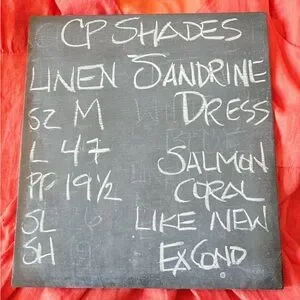 CP SHADES
LINEN SANDRINE
SZ M DRESS
L 47 SALMON
PP 19 1/2 CORAL
SL LIKE NEW
SH EX COND